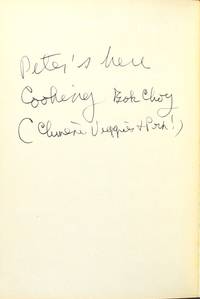 Peter's here
Cooking Bok Choy
(Chinese Veggies + Pork!)